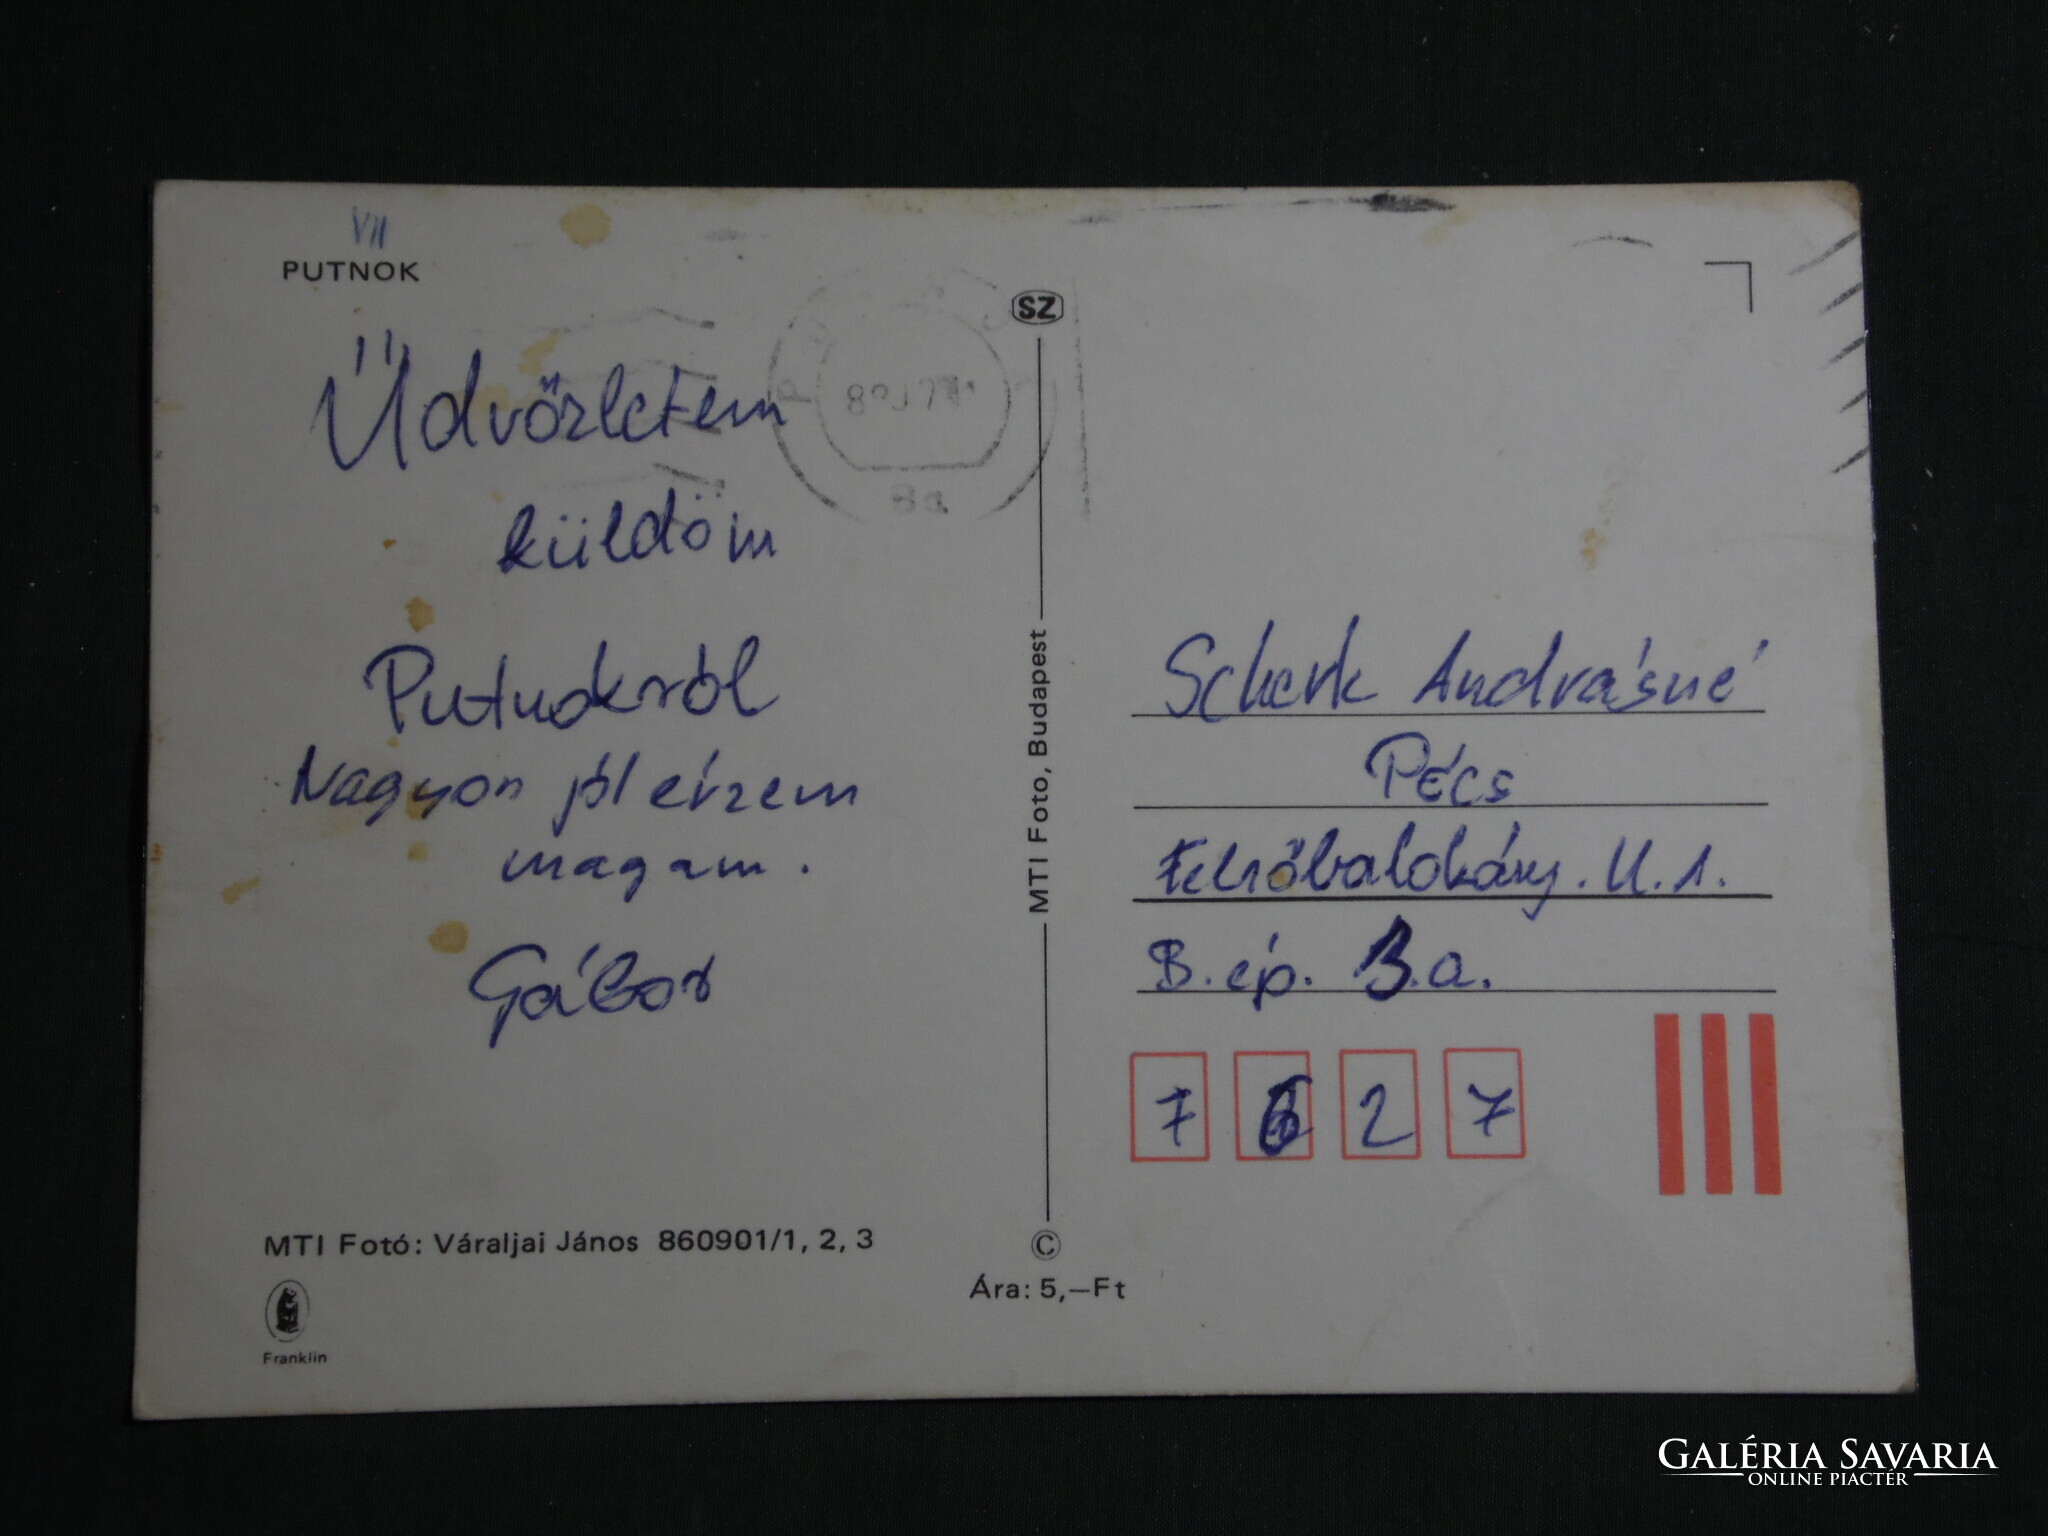 VII
PUTNOK
Üdvözletem
küldöm
Putnokról
Nagyon jól érzem
magam.
Gábor
MTI Fotó: Váraljai János 860901/1, 2, 3
Franklin
SZ
MTI Foto, Budapest
©
Ára: 5,—Ft
8a
Scherk Andrásné
Pécs
Felsőbalokány. U. 1.
B. ép. 3.a.
7 6 2 7
GALÉRIA SAVARIA
ONLINE PIACTÉR